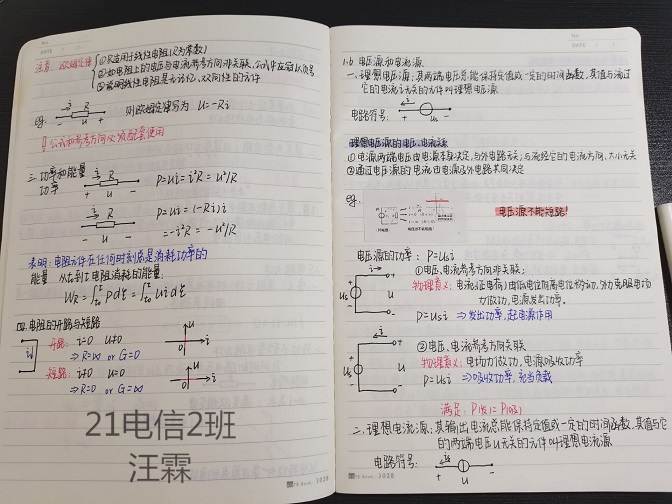 No.
DATE
注意：欧姆定律
①只适用于线性电阻(R为常数)
②如电阻上的电压与电流参考方向非关联,公式中应冠以负号
③说明线性电阻是无记忆、双向性的元件
eg.
i R
+ u -
则欧姆定律写为 u=-Ri
!! 公式和参考方向必须配套使用
三.功率和能量
功率
i R
+ u -
P=ui=i²R=u²/R
i R
- u +
P=ui=(-Ri)i
=-i²R=-u²/R
表明：电阻元件在任何时刻总是消耗功率的
能量 从t₀到t电阻消耗的能量：
四.电阻的开路与短路
开路：i=0 u≠0
⇒R=∞ or G=0
短路：i≠0 u=0
⇒R=0 or G=∞
21电信2班
汪霖
No.
DATE
1.6 电压源和电流源
一.理想电压源：其两端电压总能保持定值或一定的时间函数,其值与流过
它的电流i无关的元件叫理想电压源
电路符号：
i
+ us -
理想电压源的电压、电流关系
①电源两端电压由电源本身决定,与外电路无关;与流经它的电流方向、大小无关
②通过电压源的电流由电源及外电路共同决定
eg.
电压源不能短路!
电压源的功率：P=usi
①电压、电流参考方向非关联；
物理意义：电流(正电荷)由低电位向高电位移动,外力克服电场
力做功,电源发出功率。
P=usi ⇒发出功率,起电源作用
i
+ us -
+ u -
②电压、电流参考方向关联
物理意义：电场力做功,电源吸收功率
P=usi ⇒吸收功率,充当负载
i
+ us -
+ u -
满足：P(发)=P(吸)
二.理想电流源：其输出电流总能保持定值或一定的时间函数,其值与它
的两端电压u无关的元件叫理想电流源
电路符号：
is
+ u -
2028
2028